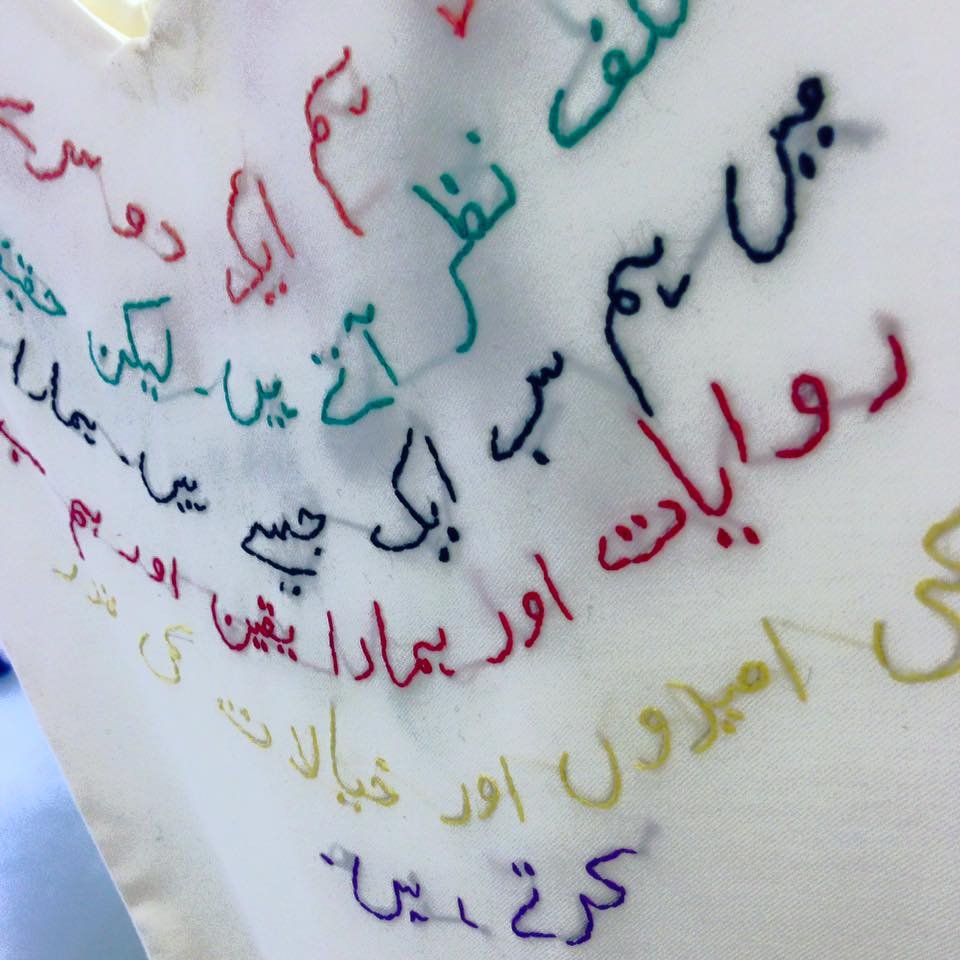 ہم ایک دوسرے
نظر آتے ہیں۔ لیکن
میں ہم سب ایک جسے ہیں۔ ہمارا
روایات اور ہمارا یقین اور ہم
کی امیدوں اور خیالات کی قدر
کرتے ہیں۔